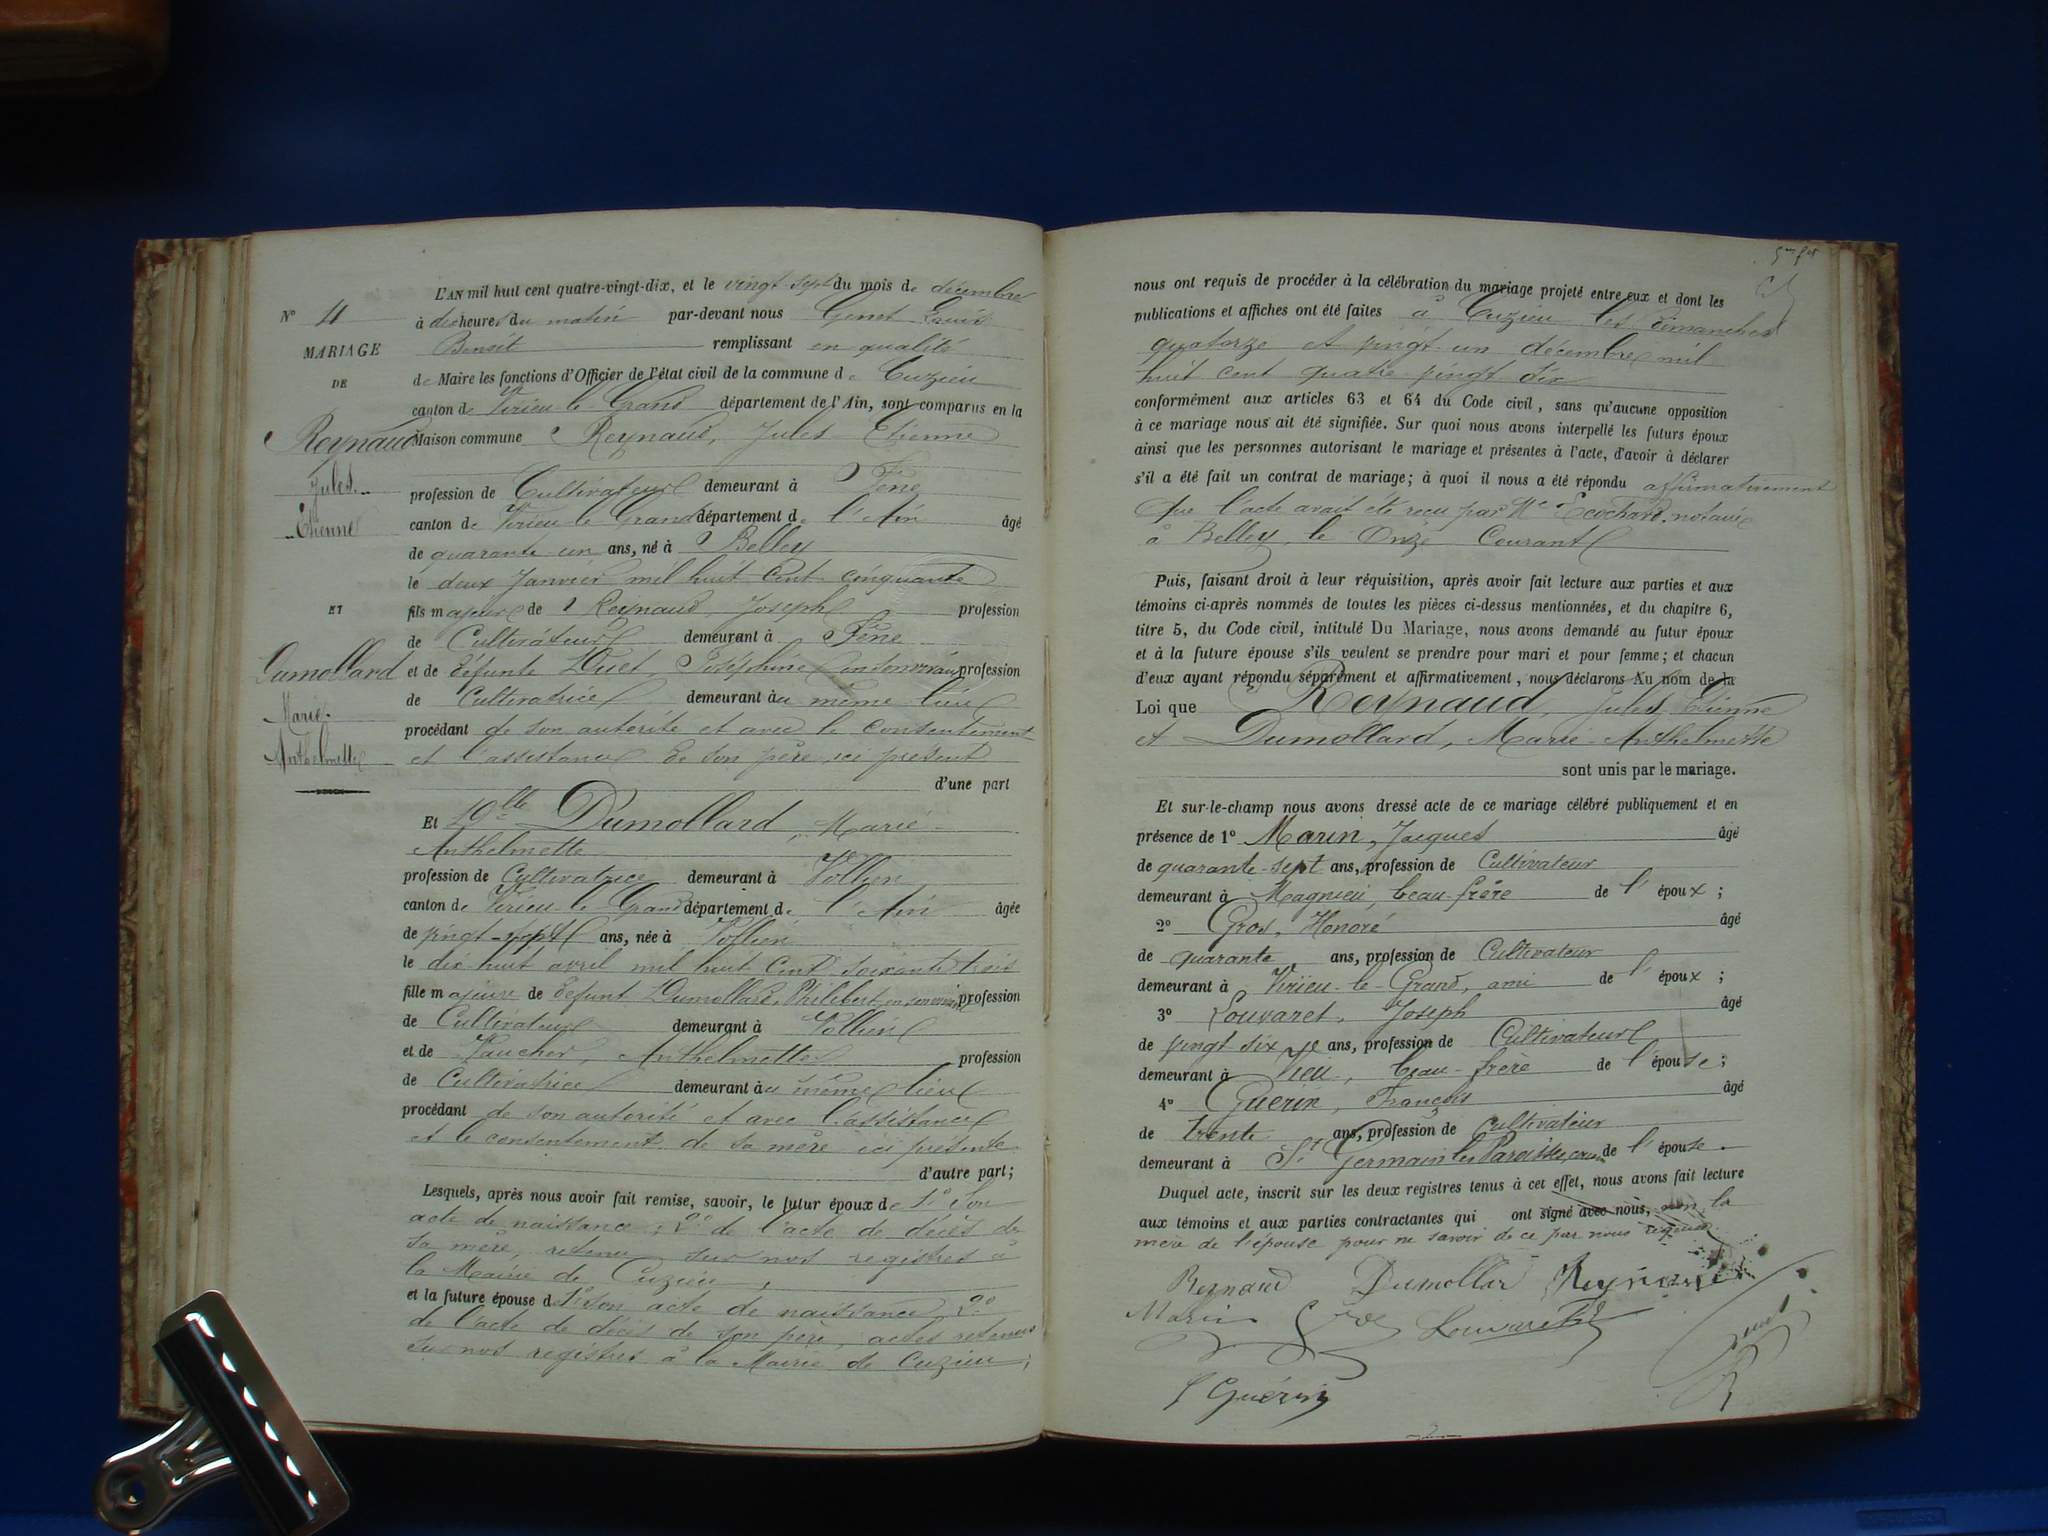 L'AN mil huit cent quatre-vingt-dix, et le vingt sept du mois de décembre
N° 4
à dix heures du matin par-devant nous Genet Louis
Benoit remplissant en qualité
MARIAGE
DE
de Maire les fonctions d'Officier de l'état civil de la commune de Cuzieu
canton de Virieu-le-Grand département de l'Ain, sont comparus en la
Reynaud
Jules
Etienne
Maison commune Reynaud, Jules Etienne
profession de Cultivateur demeurant à Fène
canton de Virieu-le-Grand département de l'Ain âgé
de quarante un ans, né à Belley
le deux Janvier mil huit Cent cinquante
ET
fils majeur de Reynaud Joseph profession
de Cultivateur demeurant à Fène
Dumollard
Marie
Anthelmette
et de défunte Duet, Joséphine profession
de Cultivatrice demeurant au même lieu
procédant de son autorité et avec le consentement
et l'assistance de son père ici présent
d'une part
Et Dlle Dumollard, Marie
Anthelmette
profession de Cultivatrice demeurant à Vollien
canton de Virieu-le-Grand département de l'Ain âgée
de vingt-sept ans, née à Vollien
le dix huit avril mil huit Cent soixante trois
fille majeure de défunt Dumollard, Philibert, en son vivant profession
de Cultivateur demeurant à Vollien
et de Vaucher, Anthelmette profession
de Cultivatrice demeurant au même lieu
procédant de son autorité et avec l'assistance
et le consentement de sa mère ici présente
d'autre part;
Lesquels, après nous avoir fait remise, savoir, le futur époux de 1° Son
acte de naissance; 2° de l'acte de décès de
sa mère, retenu sur nos registres à
la Mairie de Cuzieu,
et la future épouse d 1° son acte de naissance 2°
de l'acte de décès de son père, actes retenus
sur nos registres à la Mairie de Cuzieu;
nous ont requis de procéder à la célébration du mariage projeté entre eux et dont les
publications et affiches ont été faites à Cuzieu les dimanches
quatorze et vingt-un décembre mil
huit cent quatre vingt dix
conformément aux articles 63 et 64 du Code civil, sans qu'aucune opposition
à ce mariage nous ait été signifiée. Sur quoi nous avons interpellé les futurs époux
ainsi que les personnes autorisant le mariage et présentes à l'acte, d'avoir à déclarer
s'il a été fait un contrat de mariage; à quoi il nous a été répondu affirmativement
Que l'acte avait été reçu par Me notaire
à Belley, le Onze Courant
Puis, faisant droit à leur réquisition, après avoir fait lecture aux parties et aux
témoins ci-après nommés de toutes les pièces ci-dessus mentionnées, et du chapitre 6,
titre 5, du Code civil, intitulé Du Mariage, nous avons demandé au futur époux
et à la future épouse s'ils veulent se prendre pour mari et pour femme; et chacun
d'eux ayant répondu séparément et affirmativement, nous déclarons Au nom de la
Loi que Reynaud, Jules, Etienne
et Dumollard, Marie-Anthelmette
sont unis par le mariage.
Et sur-le-champ nous avons dressé acte de ce mariage célébré publiquement et en
présence de 1° Marin, Jacques âgé
de quarante-sept ans, profession de Cultivateur
demeurant à Magnieu, beau-frère de l'époux;
2° Gros, Honoré âgé
de quarante ans, profession de Cultivateur
demeurant à Virieu-le-Grand, ami de l'époux;
3° Louvaret, Joseph âgé
de vingt six ans, profession de Cultivateur
demeurant à Vieu, beau-frère de l'épouse;
4° Guérin, François âgé
de trente ans, profession de Cultivateur
demeurant à St Germain les Paroisses, cousin de l'épouse.
Duquel acte, inscrit sur les deux registres tenus à cet effet, nous avons fait lecture
aux témoins et aux parties contractantes qui ont signé avec nous, non la
mère de l'épouse pour ne savoir de ce par nous requise.
Reynaud Dumollar Reynaud
Marin Gros Louvaret
Genet
Guérin